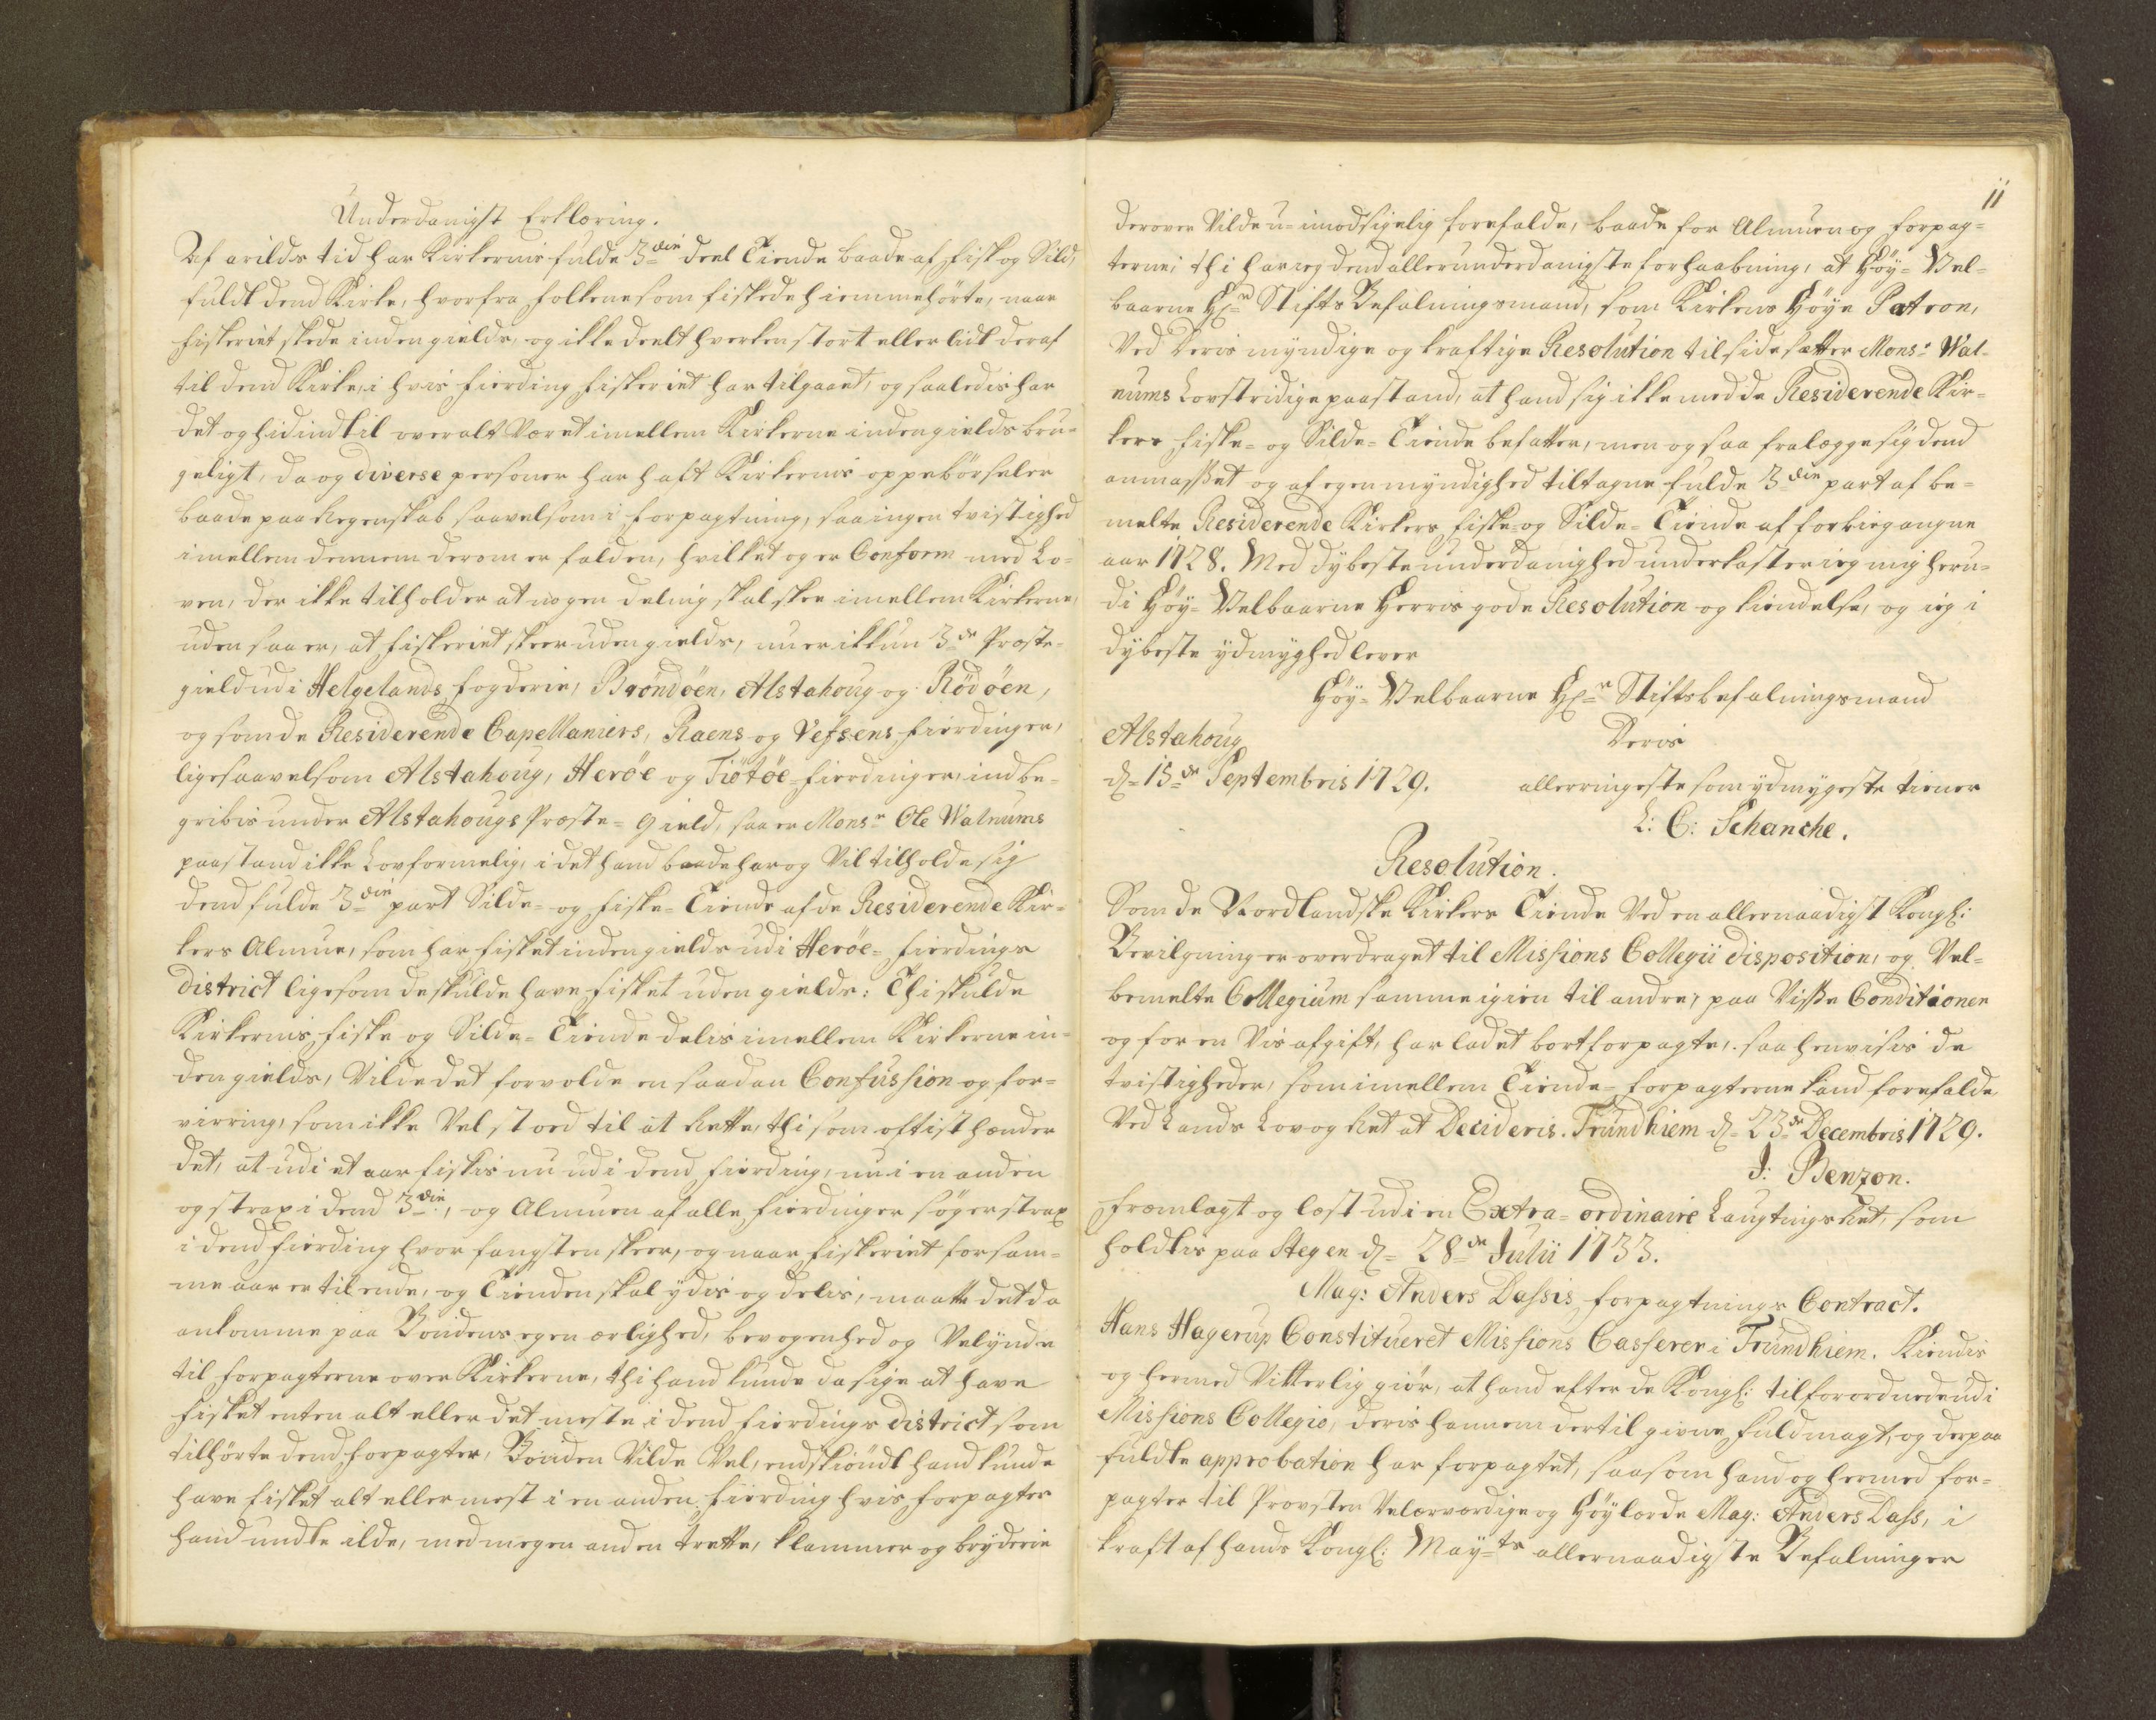 Underdanigst Erklæring.
Af arilds tid har Kirkernis fulde 3die deel Tiende baade af fisk og Sild,
fuldt dend Kirke, hvorfra folkene som fiskede hiemmehörte, naar
fiskeriet skede inden gields, og ikke deelt hverken stort eller lidt deraf
til dend Kirke, i hvis fierding fiskeriet har tilgaaet, og saaledis har
det og hidindtil overalt Været imellem Kirkerne inden gields bru-
geligt, da og diverse personer har haft Kirkernis oppebörseler
baade paa Regenskab saavelsom i forpagtning, saa ingen tvistighed
imellem dennem derom er falden, hvilket og er Conform med Lo-
ven, der ikke tilholder at nogen deling skal skee imellem Kirkerne,
uden saa er, at fiskeriet skeer uden gields, nu er ikkun 3de Præste-
gield udi Helgelands fogderie, Bröndöen, Alstahoug og Rödöen,
og som de Residerende Capellaniers, Raens og Vefsens fierdinger,
ligesaavelsom Alstahoug, Heröe og Tiötöe-fierdinger, indbe-
gribis under Alstahougs Præste-Gield, saa er Monsr Ole Walnums
paastand ikke Lovformelig, i det hand baade har og Vil tilholde sig
dend fulde 3die part Silde- og fiske-Tiende af de Residerende Kir-
kers Almue, som har fisket inden gields udi Heröe-fierdings
district ligesom de skulde have fisket uden gields: Thi skulde
Kirkernis fiske og Silde-Tiende delis imellem Kirkerne in-
den gields, Vilde det forvolde en saadan Confussion og for-
virring, som ikke Vel stoed til at Rette, thi som oftist hænder
det, at udi et aar fiskis nu udi dend fierding, nu i en anden
og strax i dend 3die, og Almuen af alle fierdinger söger strax
i dend fierding hvor fangsten skeer, og naar fiskeriet for sam-
me aar er til ende, og Tienden skal ydis og delis, maatte det da
ankomme paa Bondens egen ærlighed, bevogenhed og Velynde
til forpagterne over Kirkerne, thi hand kunde da sige at have
fisket enten alt eller det meste i dend fierdings district som
tilhörte dend forpagter, Bonden Vilde Vel, endskiöndt hand kunde
have fisket alt eller mest i en anden fierding hvis forpagter
hand undte ilde, med megen anden trette, klammer og bryderie
11
derover Vilde u-imodsigelig forefalde, baade for Almuen og forpag-
terne; thi har ieg dend allerunderdanigste forhaabning, at Höy-Vel-
baarne Hr Stifts Befalningsmand, som Kirkens Höye Patron,
Ved Deris myndige og kraftige Resolution tilside sætter Monsr Wal-
nums Lovstridige paastand, at hand sig ikke med de Residerende Kir-
kers fiske- og Silde-Tiende befatter, men og saa fralægge sig dend
anmasset og af egen myndighed tiltagne fulde 3die part af be-
melte Residerende Kirkers fiske-og Silde-Tiende af forbiegangne
aar 1728. Med dybeste underdanighed underkaster ieg mig heru-
di Höy-Velbaarne Herris gode Resolution og kiendelse, og ieg i
dybeste ydmyghed lever
Höy-Velbaarne Hr Stiftsbefalningsmand
Alstahoug
Deris
d. 15de Septembris 1729.
allerringeste som ydmygeste tiener
L: C: Schanche.
Resolution.
Som de Nordlandske Kirkers Tiende Ved en allernaadigst Kongl:
Bevilgning er overdraget til Missions Collegii disposition, og Vel-
bemelte Collegium samme igien til andre, paa Visse Conditioner
og for en Vis afgift, har ladet bortforpagte, saa henvisis de
tvistigheder, som imellem Tiende-forpagterne kand forefalde,
Ved Lands Lov og Ret at Decideris. Trundhiem d. 23de Decembris 1729.
J: Benzon.
fremlagt og læst udi en Extra-ordinaire Laugtings Ret, som
holdtis paa Stegen d. 28de Julii 1733.
Mag: Anders Dassis forpagtnings Contract.
Hans Hagerup Constitueret Missions Casserer i Trundhiem. Kiendis
og hermed Vitterlig giör, at hand efter de Kongl: tilforordnede udi
Missions Collegio, deris hannem dertil givne fuldmagt, og derpaa
fuldte approbation har forpagtet, saasom hand og hermed for-
pagter til Provsten Velærværdige og Höylærde Mag: Anders Dass, i
kraft af hands Kongl: Mayts allernaadigste Befalninger